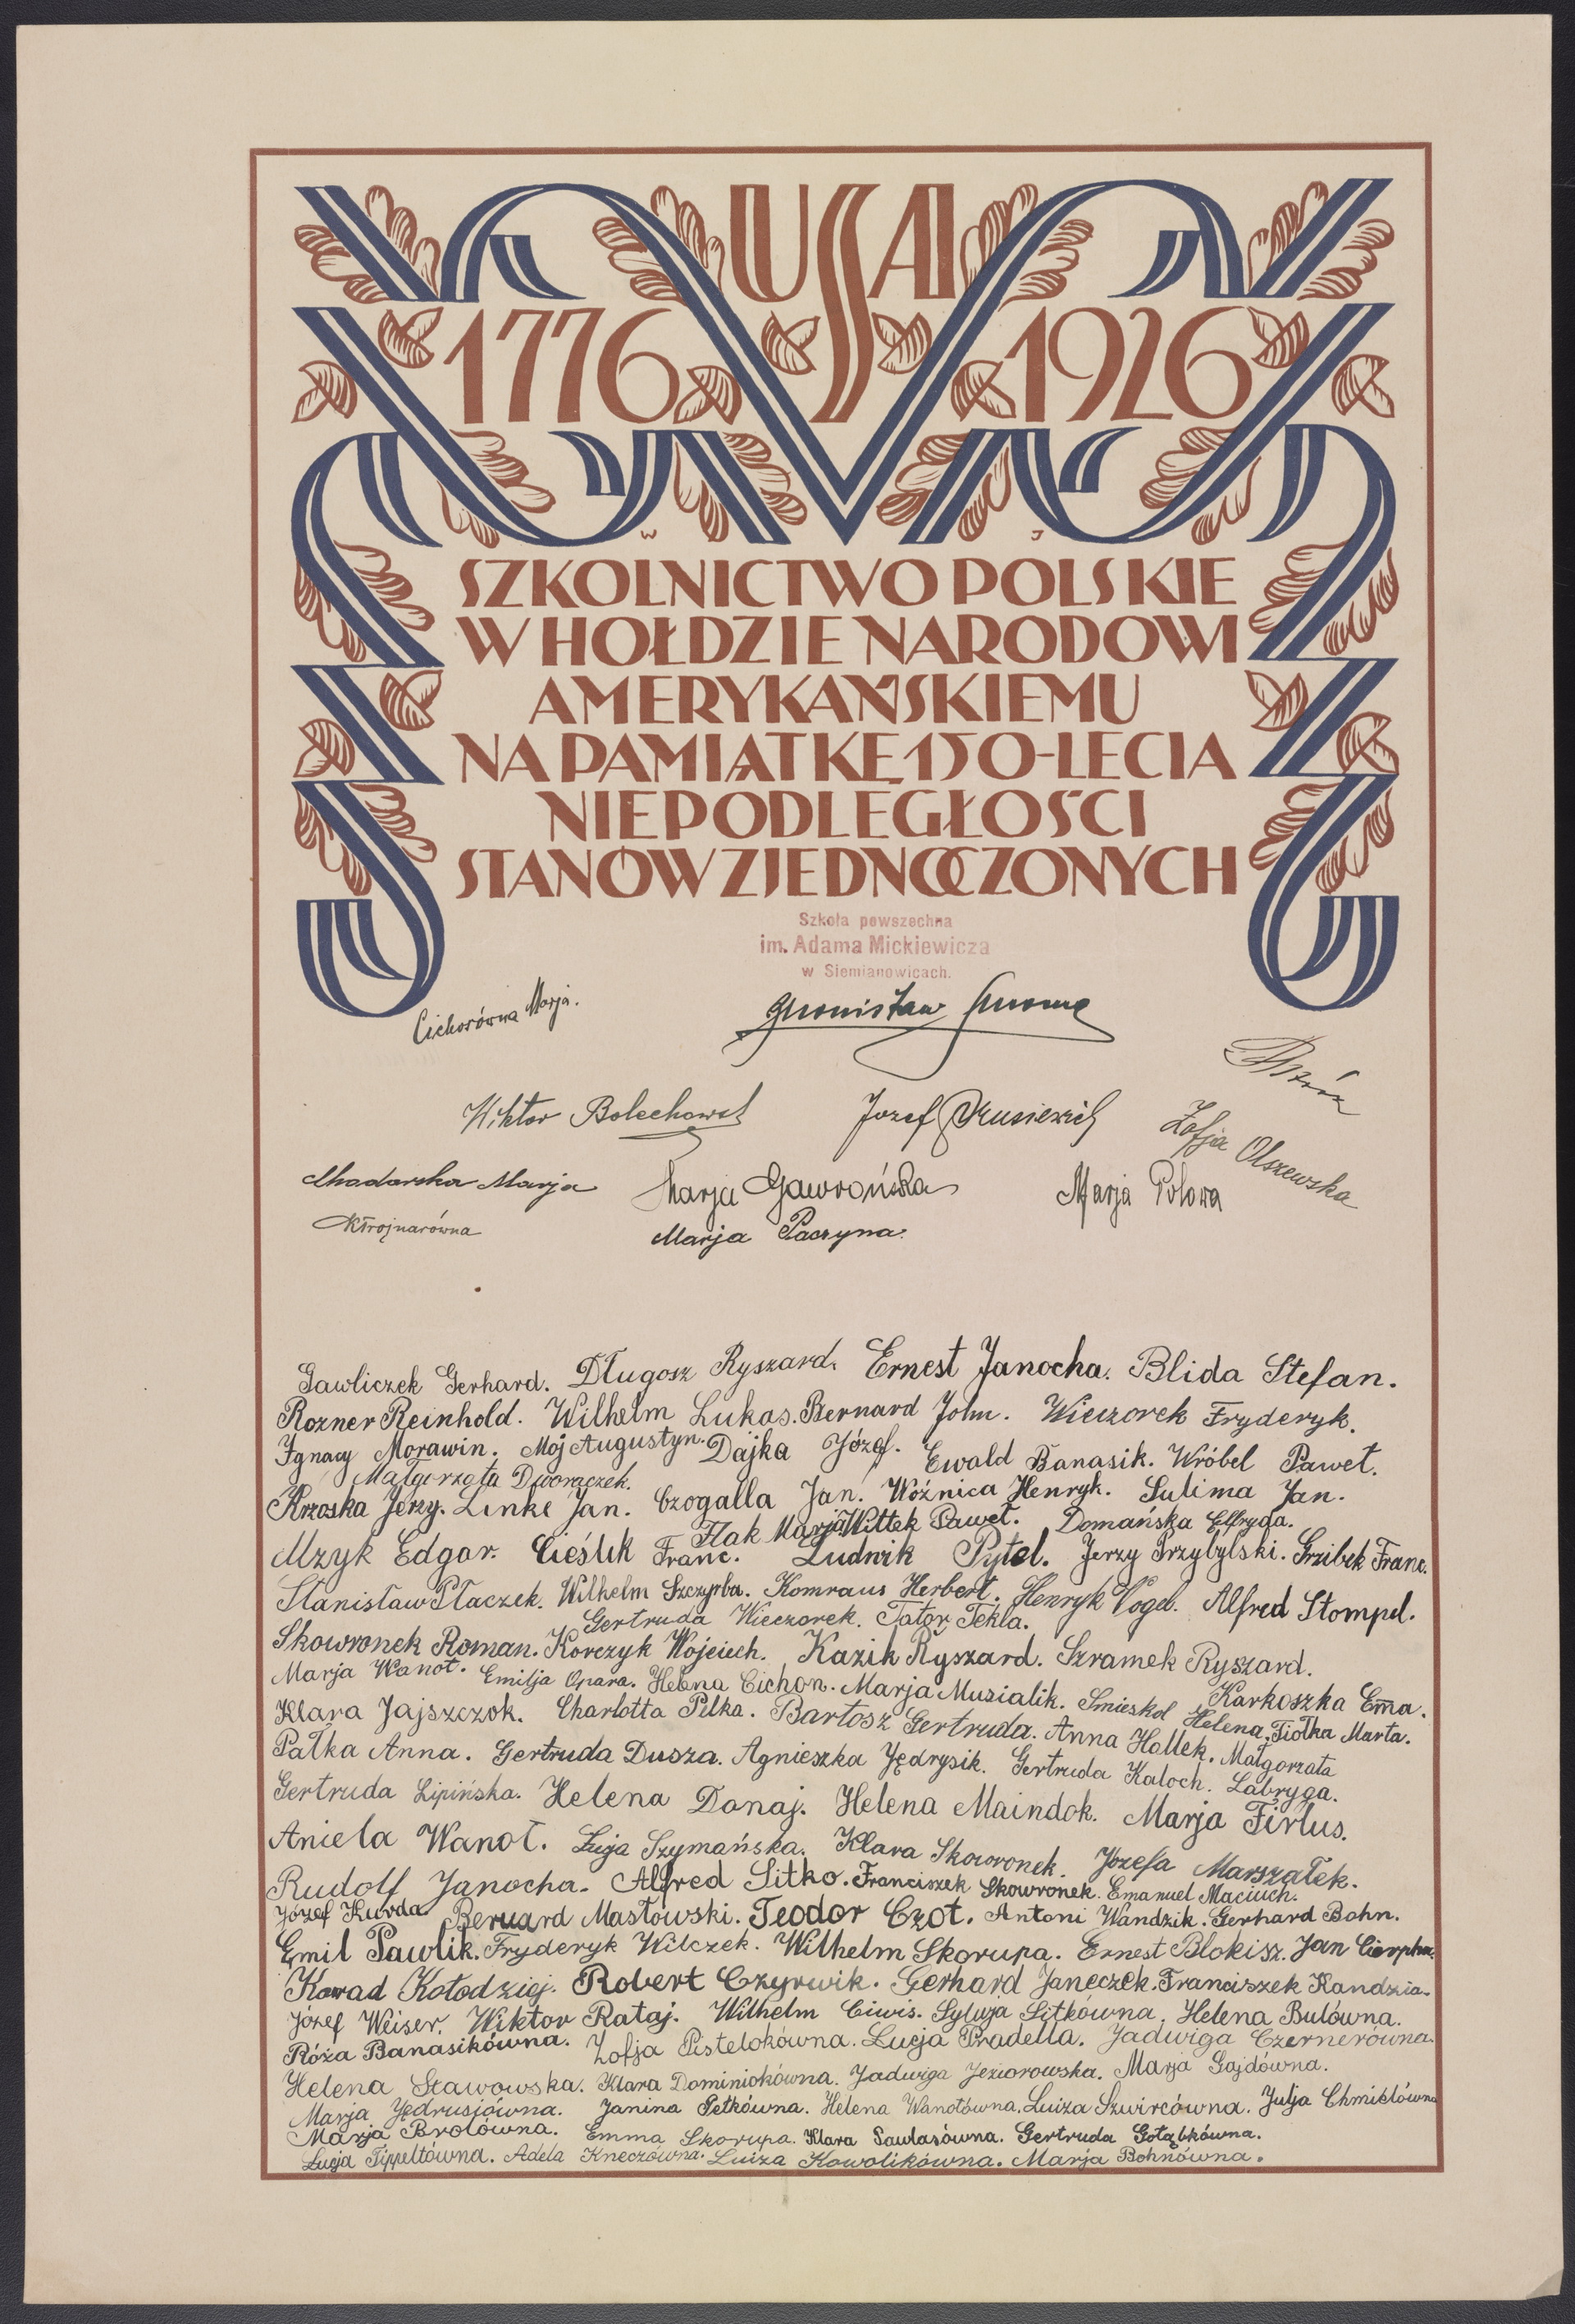 USA
1776 1926
W J
SZKOLNICTWO POLSKIE
W HOŁDZIE NARODOWI
AMERYKAŃSKIEMU
NA PAMIĄTKĘ 150-LECIA
NIEPODLEGŁOŚCI
STANÓW ZJEDNOCZONYCH
Szkoła powszechna
im. Adama Mickiewicza
w Siemianowicach.
Cichorówna Marja.
Wiktor Bolechowsk Józef
Zofja Olszewska
Marja Marja Gawrońska Marja Polowa
Marja Paczyna.
Gawliczek Gerhard. Długosz Ryszard. Ernest Janocha. Blida Stefan.
Rozner Reinhold. Wilhelm Lukas. Bernard John. Wieczorek Fryderyk.
Ignacy Morawin. Mój Augustyn. Dajka Józef. Ewald Banasik. Wróbel Paweł.
Małgorzata Dworaczek.
Krzoska Jerzy. Linke Jan. Czogalla Jan. Woźnica Henryk. Sulima Jan.
Flak Marja Wittek Paweł. Domańska Elfryda.
Mzyk Edgar. Cieślik Franc. Ludwik Pytel. Jerzy Przybylski. Grzibek Franc.
Stanisław Płaczek. Wilhelm Szczyrba. Komraus Herbert. Henryk Vogel. Alfred Stompel.
Gertruda Wieczorek. Tator Tekla.
Skowronek Roman. Korczyk Wojciech. Kazik Ryszard. Szramek Ryszard.
Marja Wanot. Emilja Opara. Helena Cichon. Marja Musialik. Smieskol Helena. Karkoszka Em̄a.
Klara Jajszczok. Charlotta Pilka. Bartosz Gertruda. Anna Hallek. Fiołka Marta.
Pałka Anna. Gertruda Dusza. Agnieszka Jędrysik. Gertruda Kaloch. Małgorzata Labryga.
Gertruda Lipińska. Helena Donaj. Helena Maindok. Marja Firlus.
Aniela Wanot. Łuja Szymańska. Klara Skowronek. Józefa Marszałek.
Rudolf Janocha. Alfred Sitko. Franciszek Skowronek. Emanuel Maciuch.
Józef Kurda Bernard Masłowski. Teodor Czot. Antoni Wandzik. Gerhard Bohn.
Emil Pawlik. Fryderyk Wilczek. Wilhelm Skorupa. Ernest Blokisz. Jan Cierpka.
Konrad Kołodziej. Robert Czyrwik. Gerhard Janeczek. Franciszek Kandzia.
Józef Weiser. Wiktor Rataj. Wilhelm Ciwis. Sylwja Sitkówna. Helena Bulówna.
Róża Banasikówna. Zofja Pistelokówna. Łucja Pradella. Jadwiga Czernerówna.
Helena Stawowska. Klara Dominiokówna. Jadwiga Jeziorowska. Marja Gajdówna.
Marja Jędrusiówna. Janina Petkówna. Helena Wanotówna. Luiza Szwircówna. Julja Chmielówna
Marja Brolówna. Emma Skorupa. Klara Sawlasówna. Gertruda Gołąbkówna.
Łucja Tippeltówna. Adela Kneczówna. Luiza Kowolikówna. Marja Bohnówna.